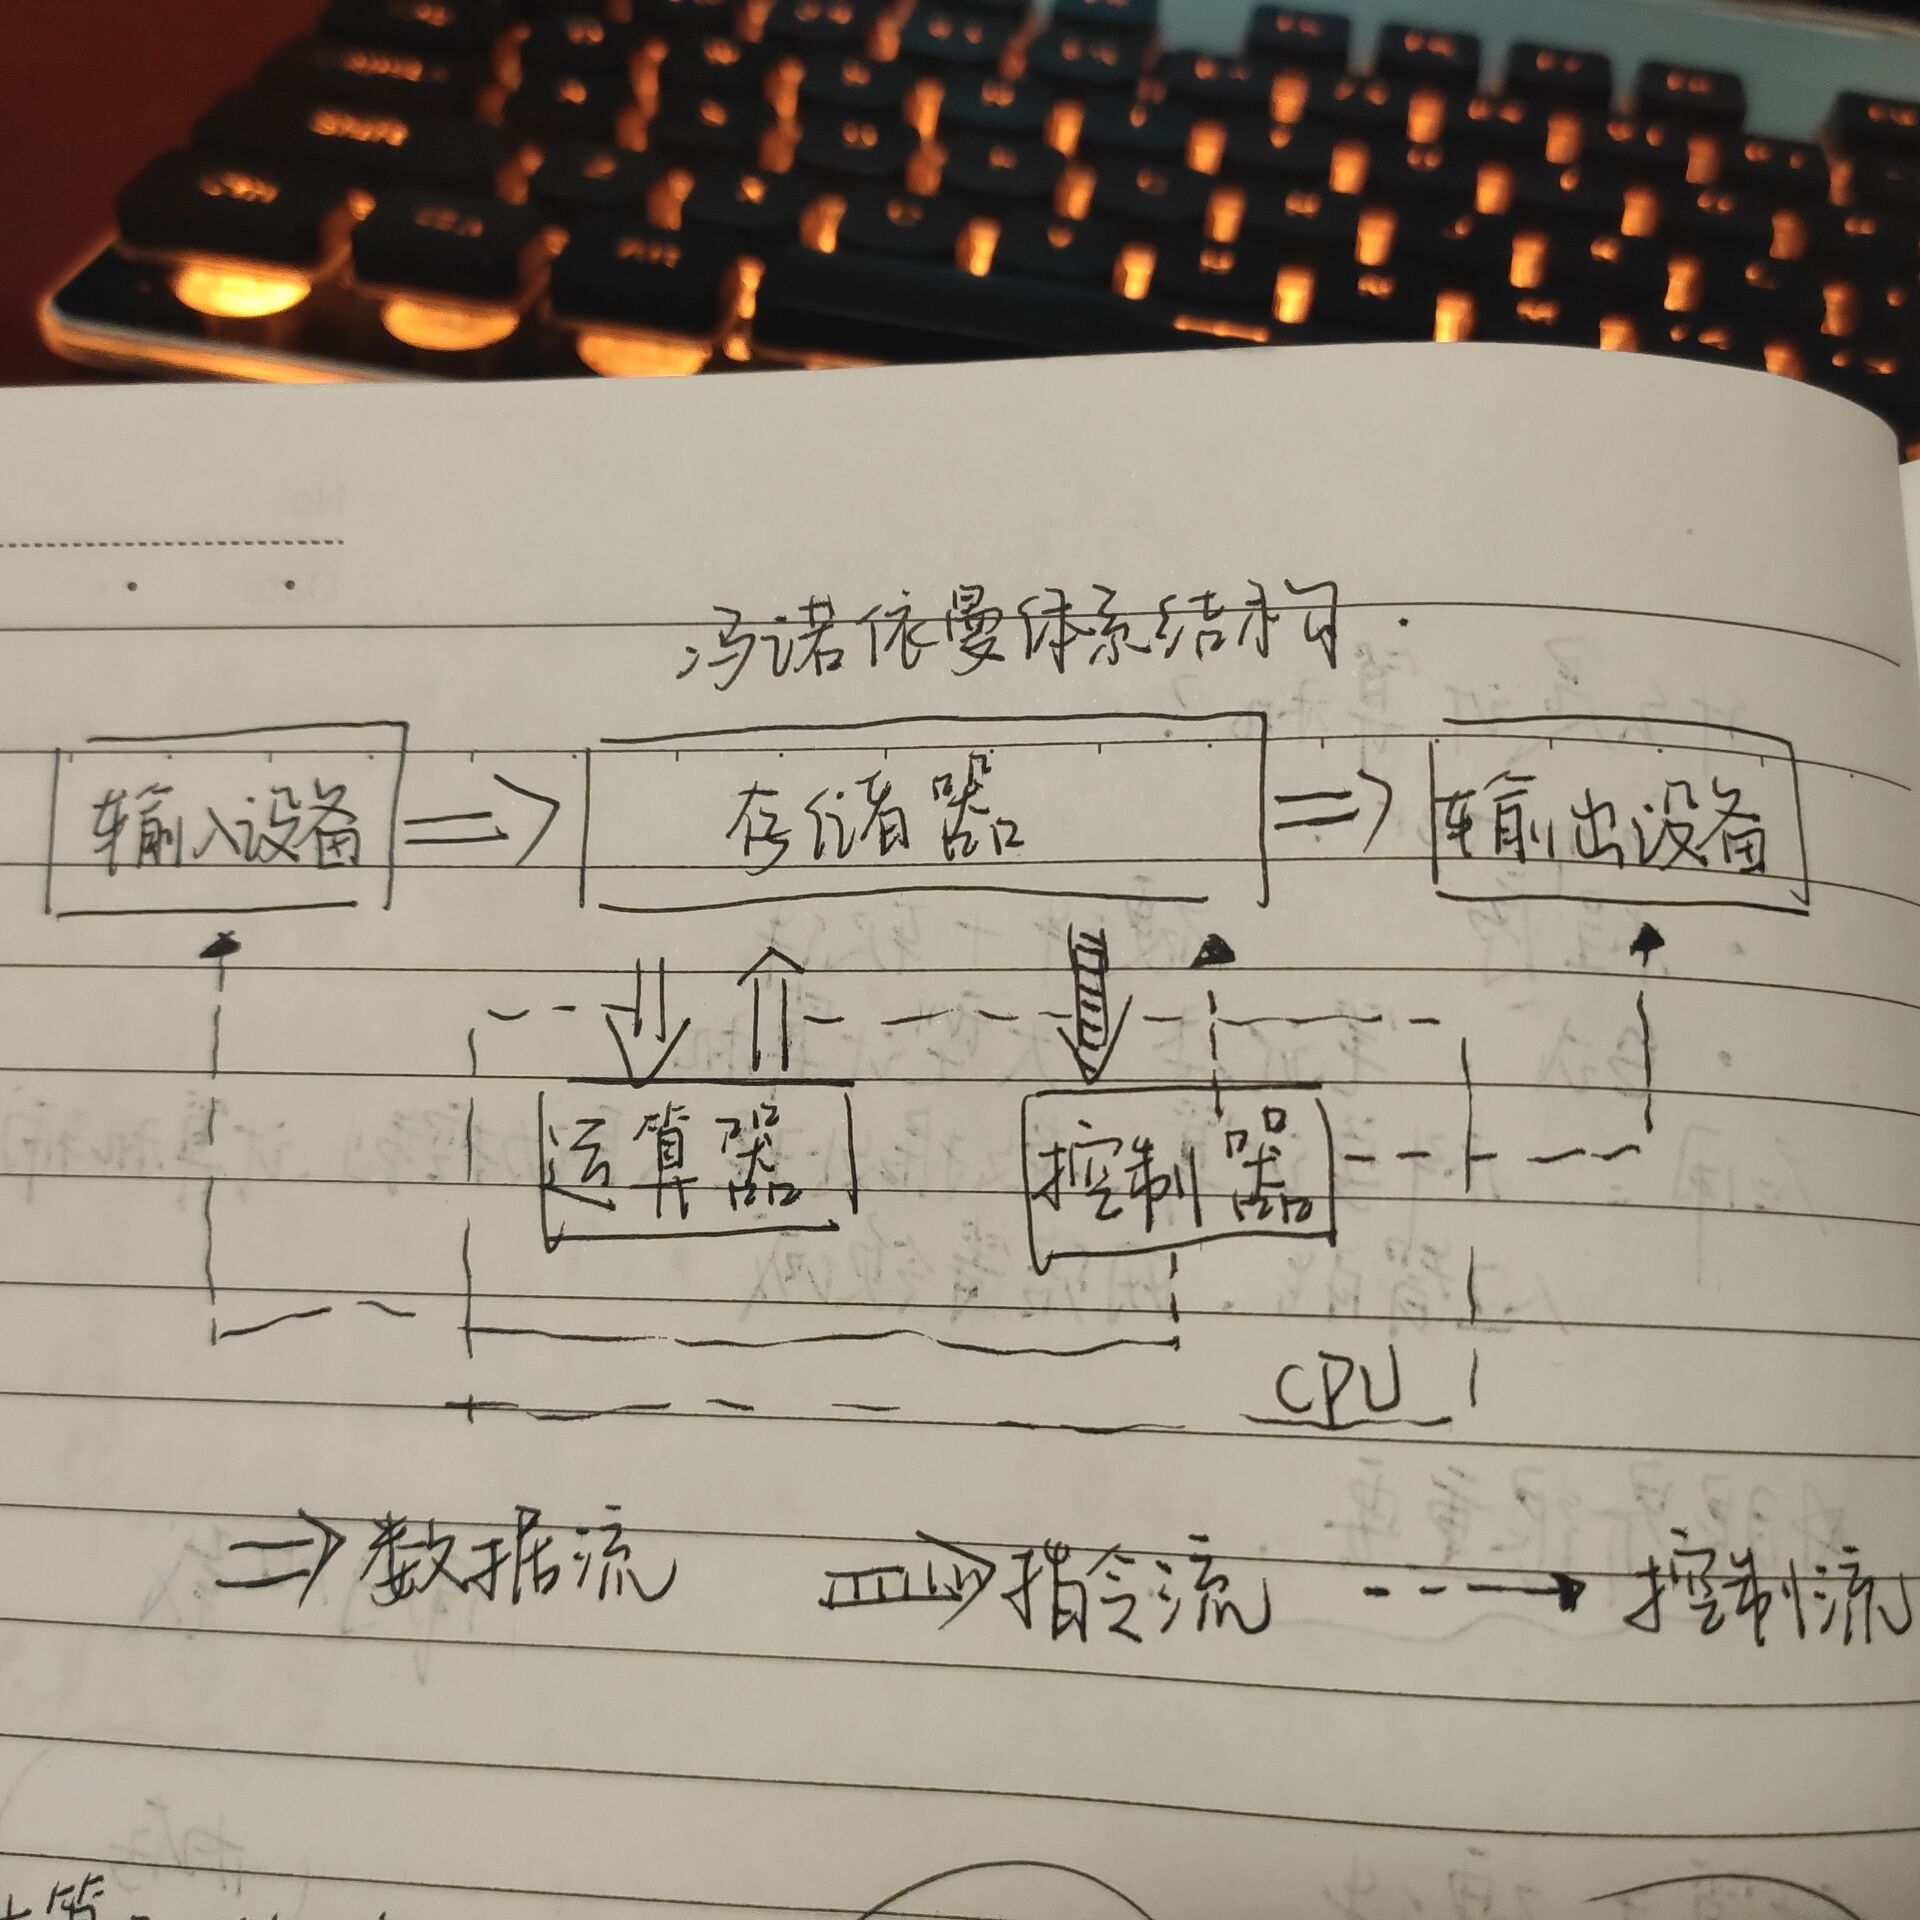 冯诺依曼体系结构.
输入设备 => 存储器 => 输出设备
运算器 控制器
CPU
=> 数据流 指令流 控制流